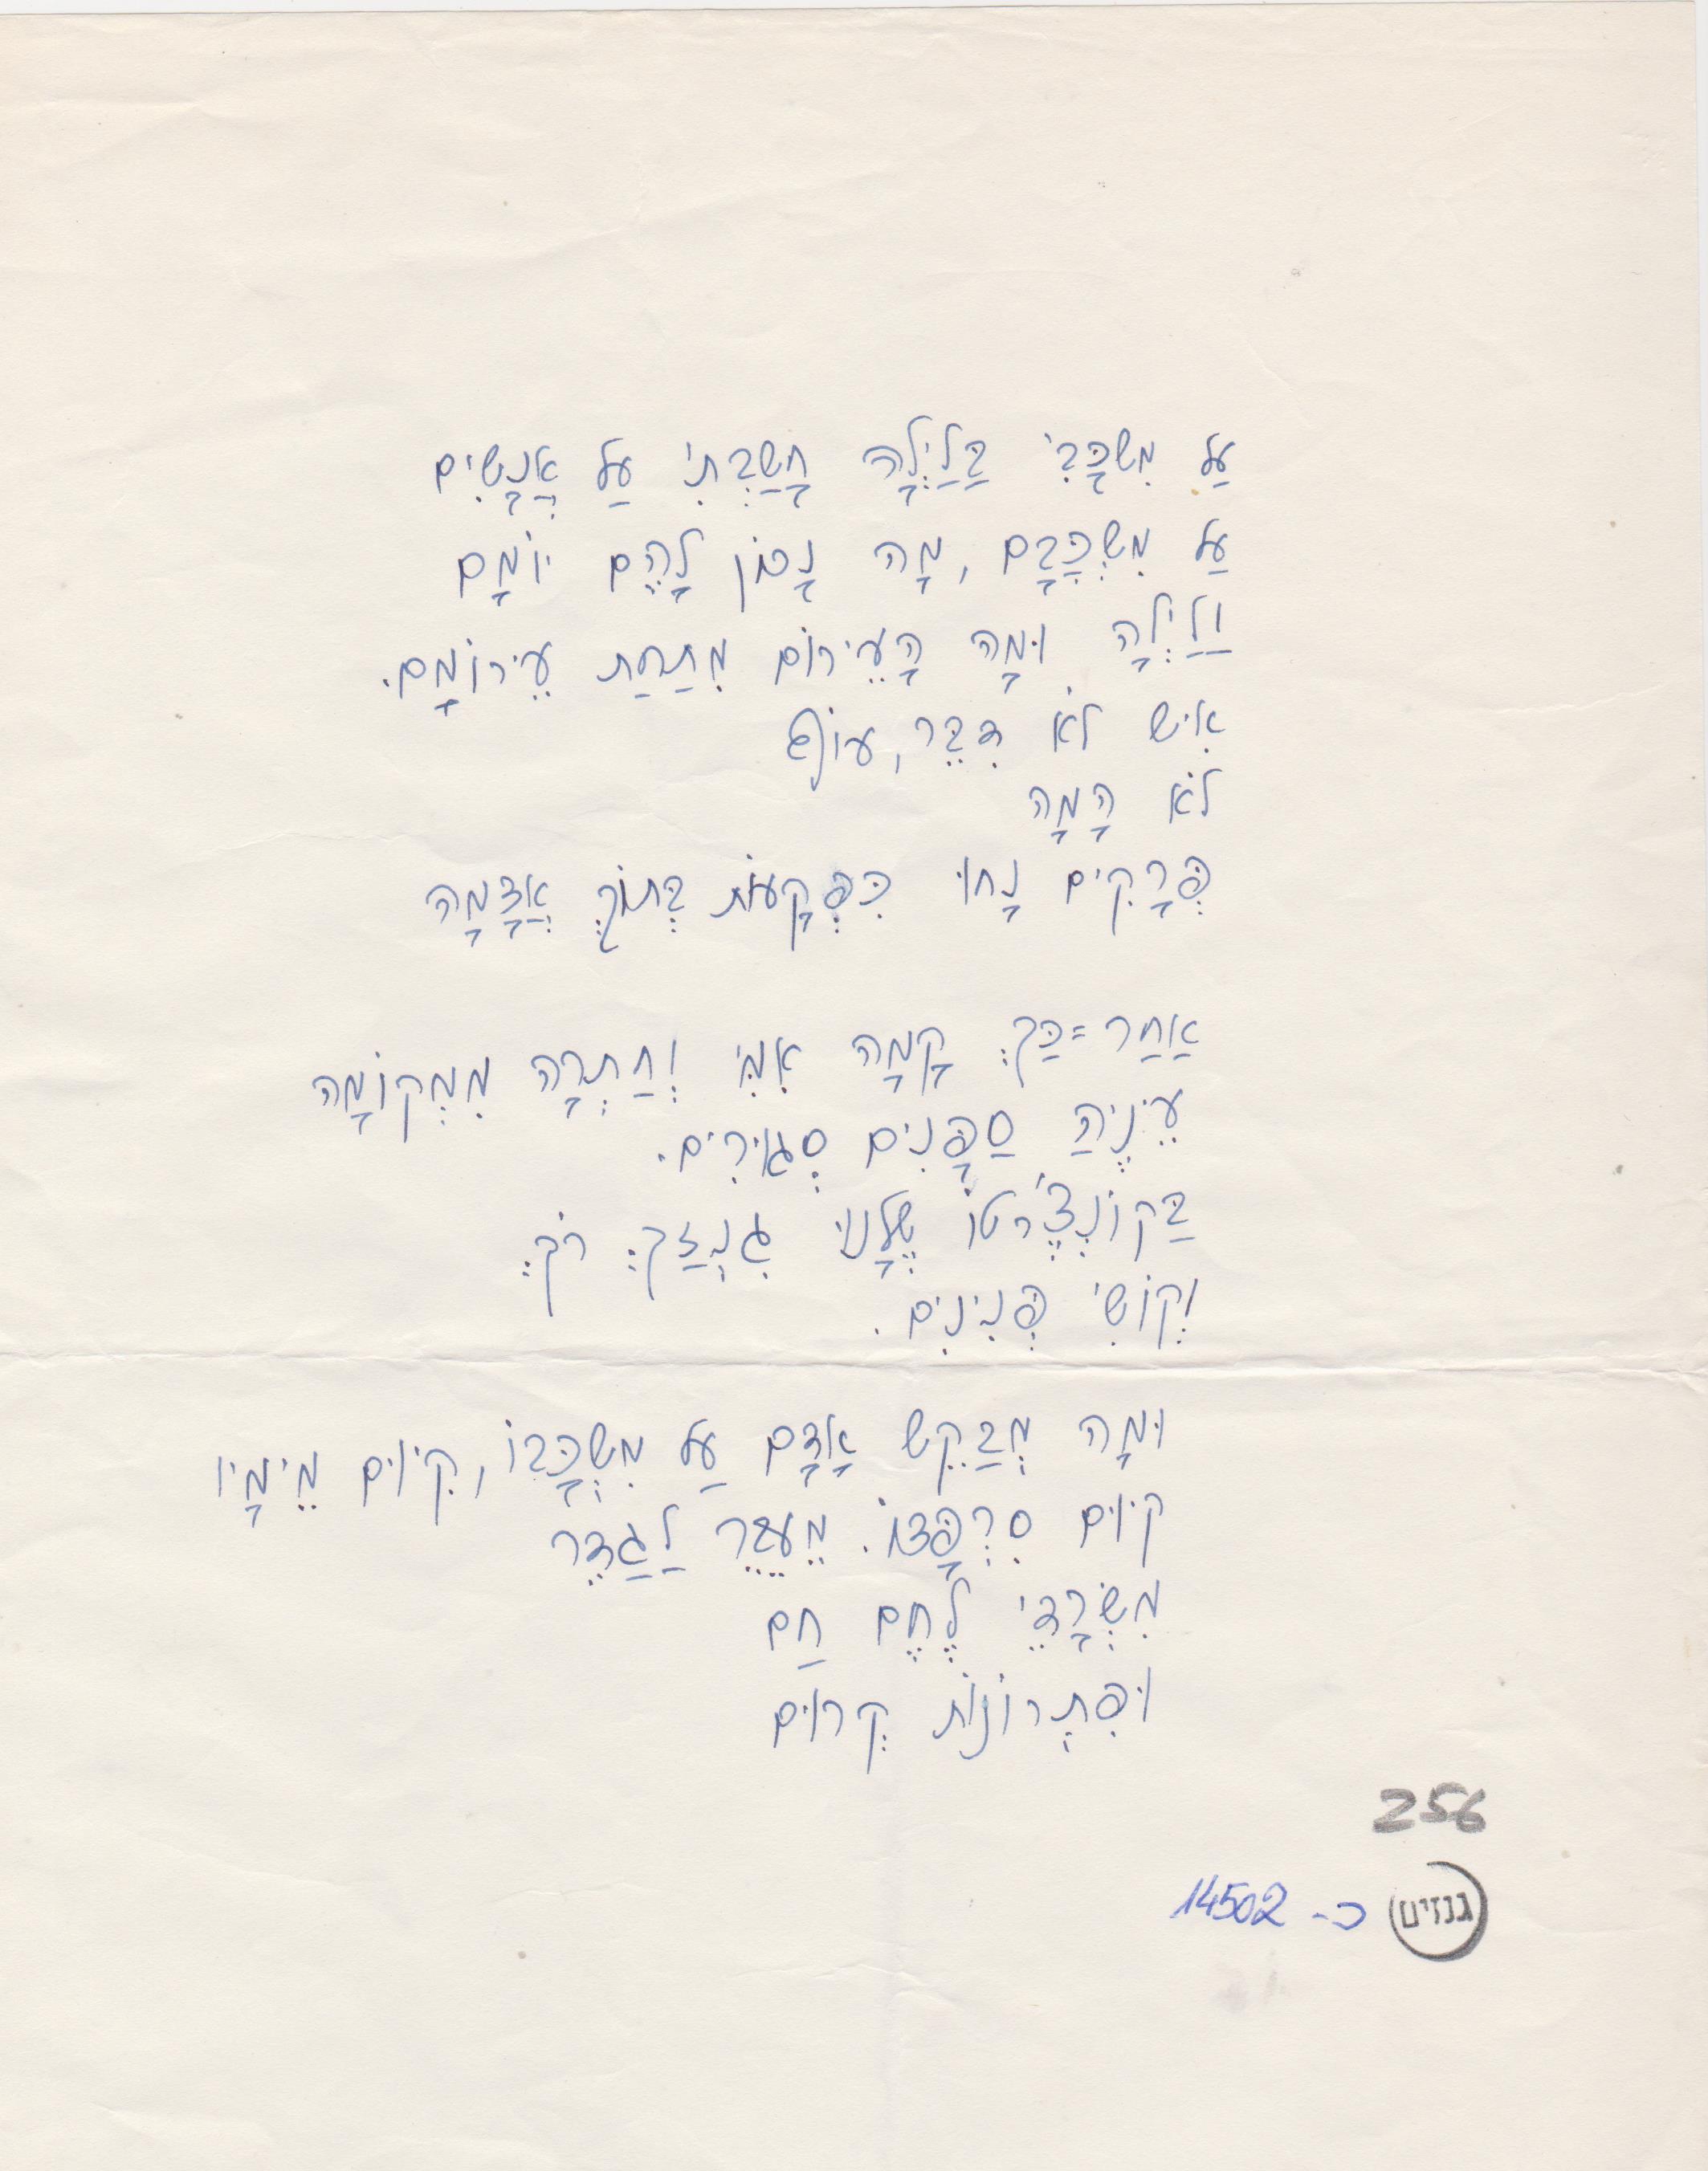 עַל מִשׁכָּבִי בַּלַּיְלָה חָשַׁבְתִּי עַל אֲנָשִׁים
עַל מִשְׁכָּבָם, מָה נָכוֹן לָהֶם יוֹמָם
וַלַיְלָה וּמָה הָעֵירוֹם מִתַּחַת עֵירוֹמָם.
אִיש לֹא דִבֵּר, עוֹף
לֹא הָמָה
פְּרָקִים נָחוּ כִּפְקָעוֹת בְּתוֹךְ אֲדָמָה
אַחַר=כַּךְ קָמָה אִמִּי וְחַתְרָה מִמְקוֹמָה
עֵינֶיהַ סַפָּנִים סְגוּרִים.
בַּקוֹנְצֶ'רטוֹ שֶׁלָנוּ גִנְזַךְ רֹךְ
וְקוֹשִׁי פְּנִינִים.
וּמָה מְבַקֵש אָדָם עַל מִשְׁכָּבוֹ, קִיוּם מֵימָיו
קיוּם סִרְפָּדוֹ. מֵעֵבֶר לַגָדֵר
מִשְׂרָדֵי לֶחֶם חַם
וּפִתְרוֹנוֹת קְרוּם
256
גנזים כ- 14502